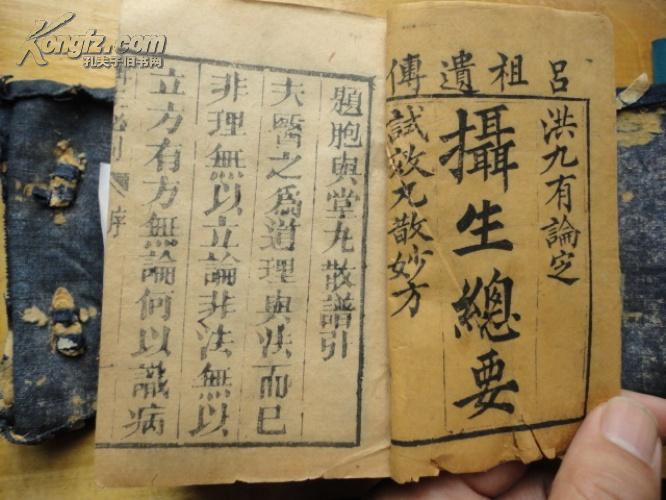 呂祖遺傳
洪九有論定
攝生總要
試效丸散妙方
題胞與堂丸散譜引
夫醫之爲道理與法而已
非理無以立論非法無以
立方有方無論何以識病
序
Kongfz.com
孔夫子旧书网